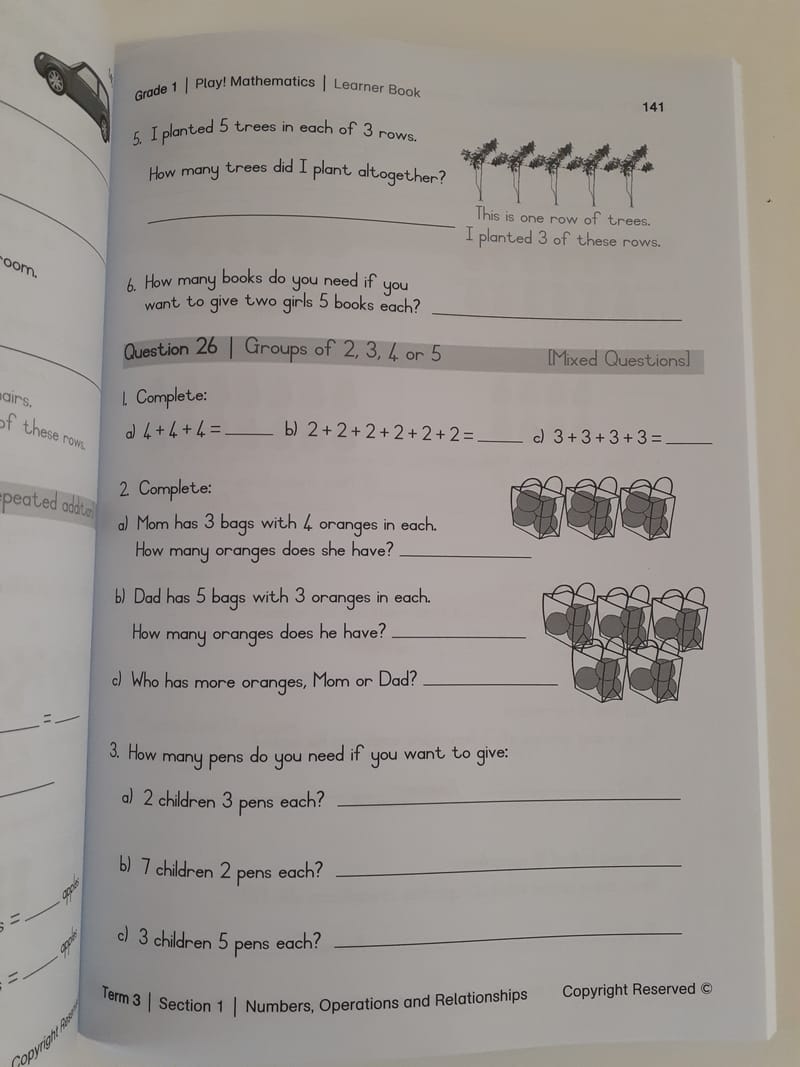 Grade 1 | Play! Mathematics | Learner Book
141
5. I planted 5 trees in each of 3 rows.
How many trees did I plant altogether?
This is one row of trees.
I planted 3 of these rows.
6. How many books do you need if you
want to give two girls 5 books each?
Question 26 | Groups of 2, 3, 4 or 5 [Mixed Questions]
1. Complete:
a) 4 + 4 + 4 = ____ b) 2 + 2 + 2 + 2 + 2 + 2 = ____ c) 3 + 3 + 3 + 3 = ____
2. Complete:
a) Mom has 3 bags with 4 oranges in each.
How many oranges does she have?
b) Dad has 5 bags with 3 oranges in each.
How many oranges does he have?
c) Who has more oranges, Mom or Dad?
3. How many pens do you need if you want to give:
a) 2 children 3 pens each?
b) 7 children 2 pens each?
c) 3 children 5 pens each?
Term 3 | Section 1 | Numbers, Operations and Relationships Copyright Reserved ©
of these rows.
= 
= ____ apples
= ____ apples
Copyright